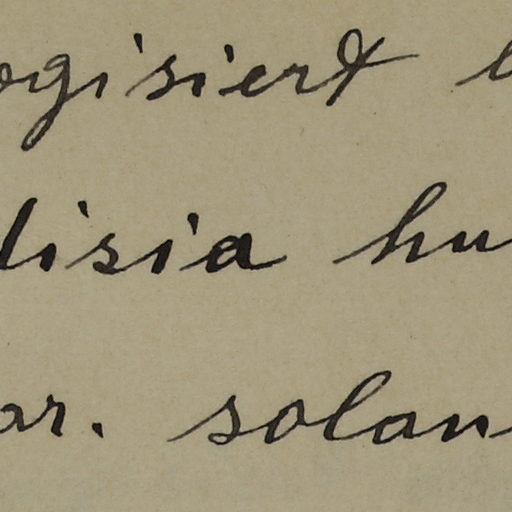 ogisiert
lisia hu
ar. solan